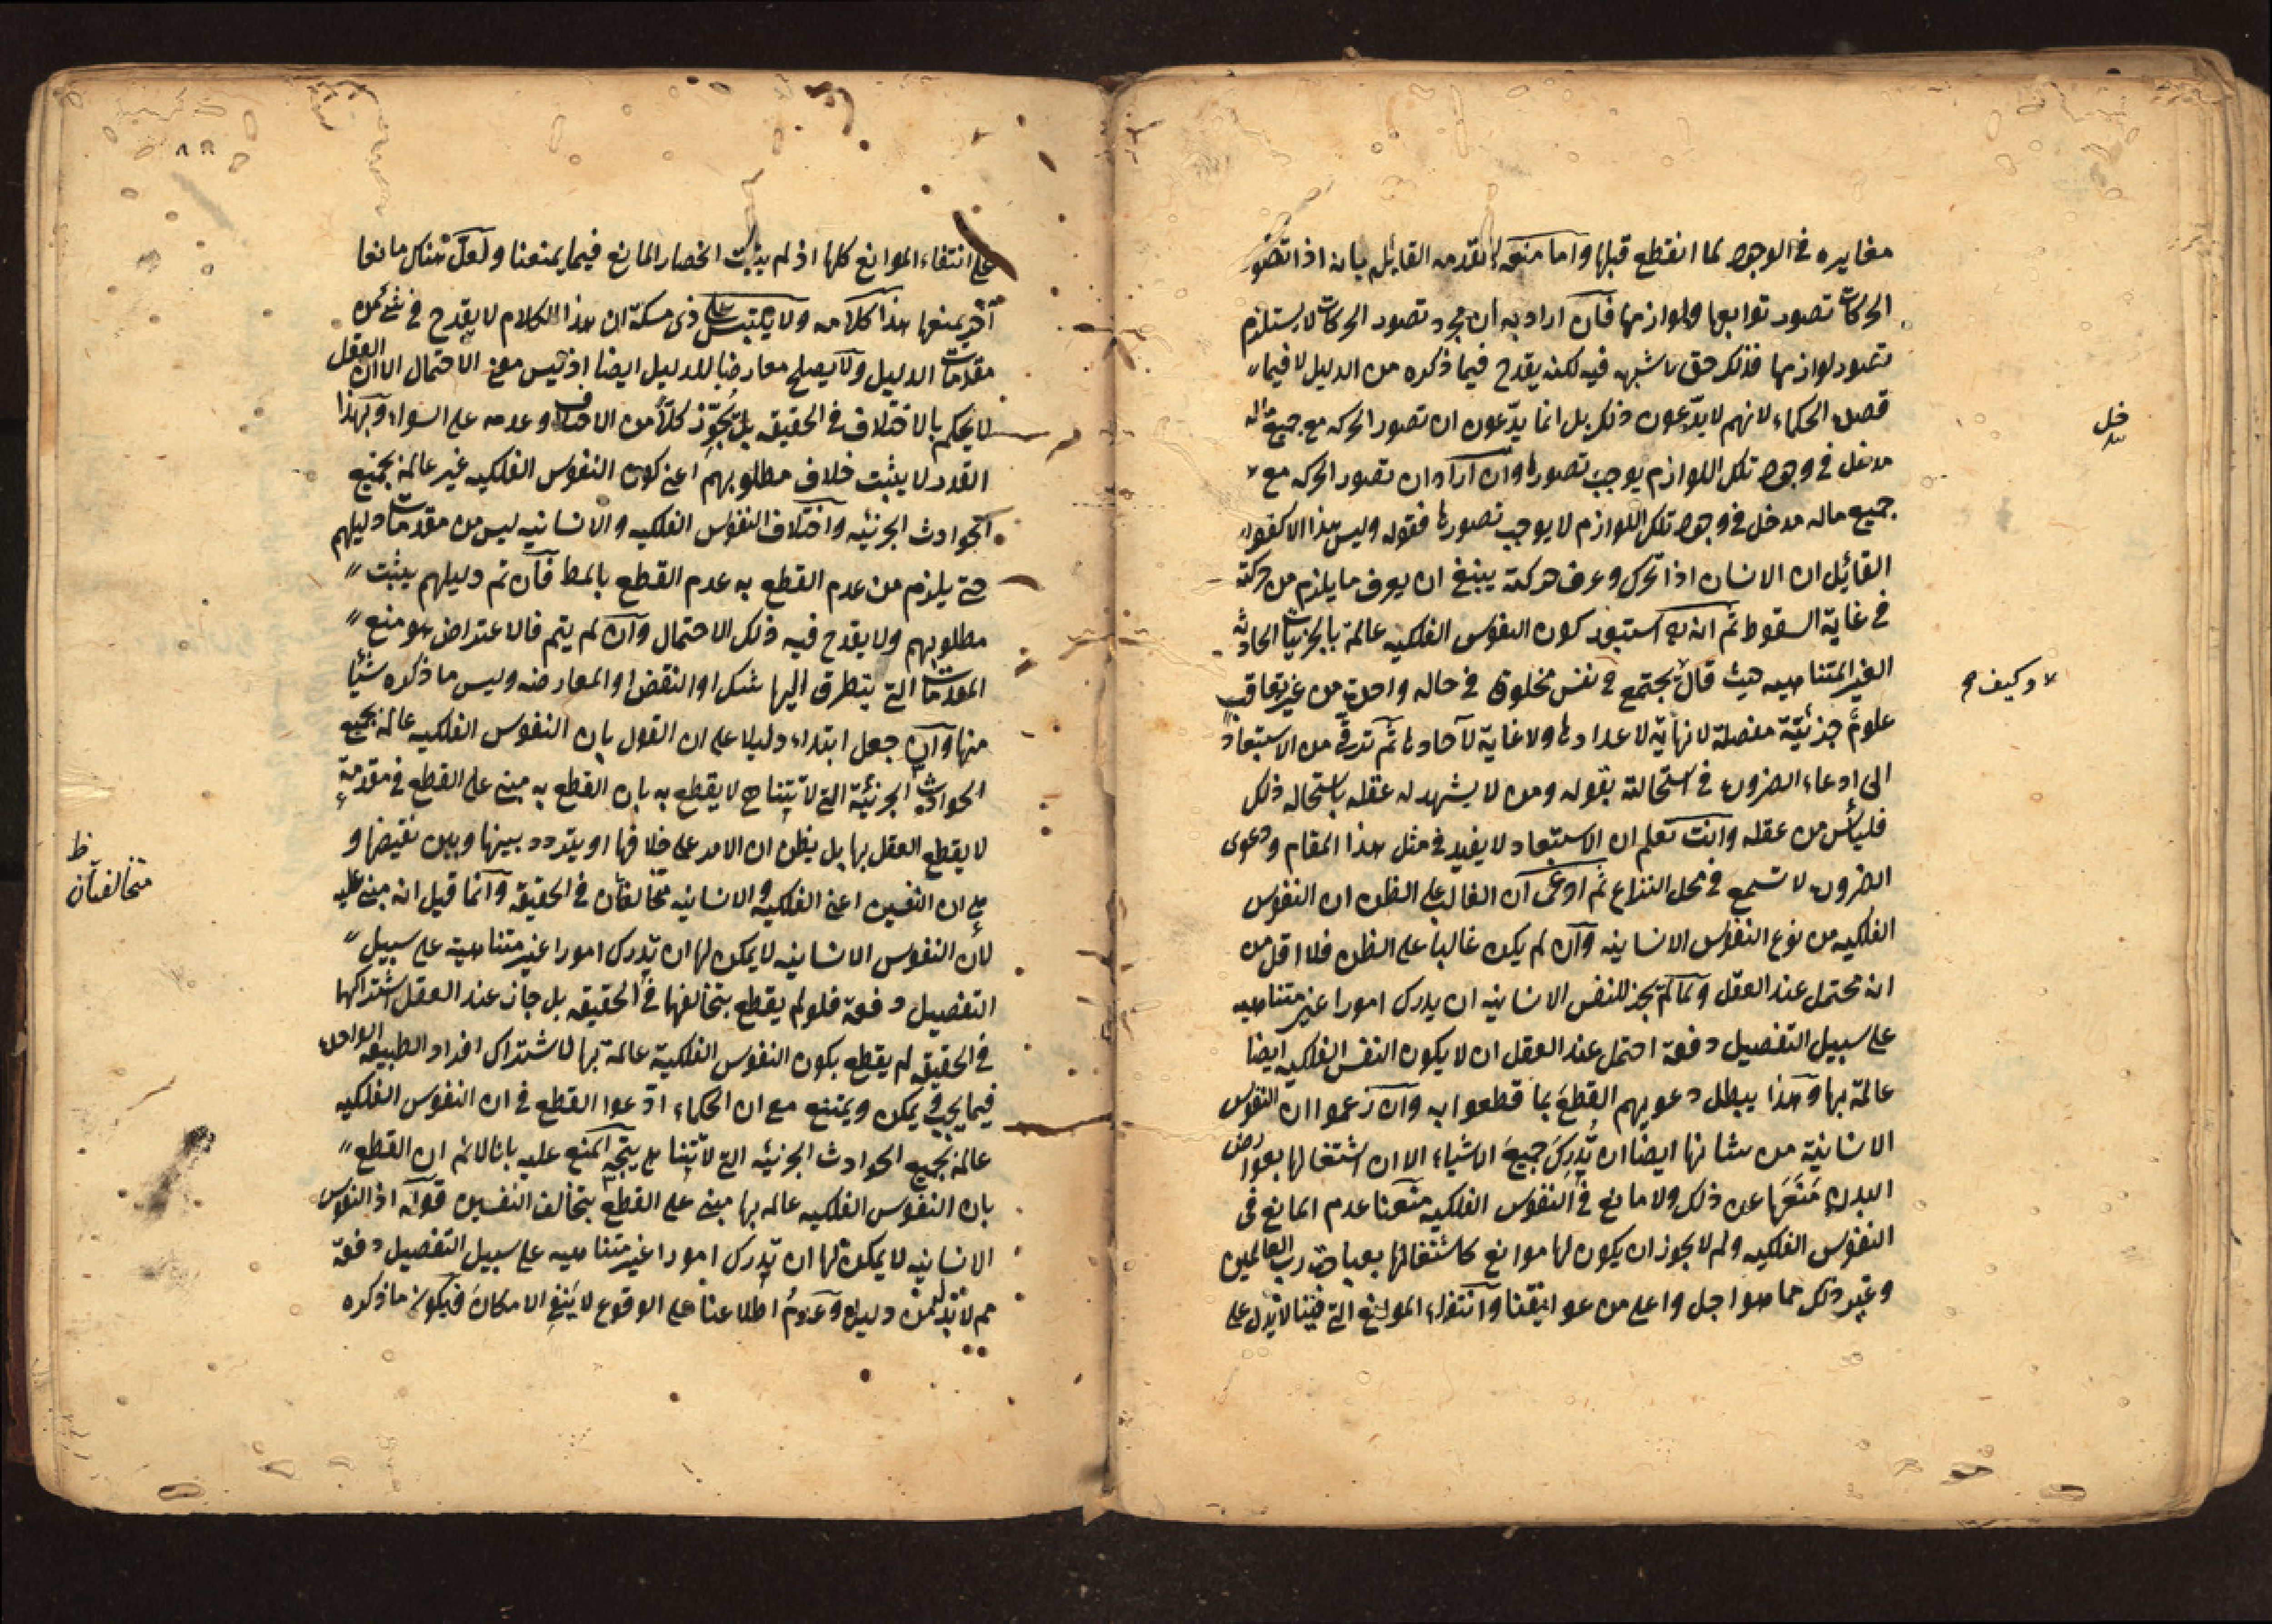 مغايره في الوجود لما انقطع قبلها واما منعه لمقدمه القايل بانه اذا تصور
الحركات تصور توابعها ولوازمها فان اراد به ان مجرد تصور الحركات لا يستلزم
تصور لوازمها فذلك حق لا شبهه فيه لكنه يقدح فيما ذكره من الدليل لا فيما
قصده الحكماء لانهم لا يدّعون ذلك بل انما يدّعون ان تصور الحركه مع جميع ماله
مدخل في وجود تلك اللوازم يوجب تصورها وان اراد ان تصور الحركه مع
جميع ماله مدخل في وجود تلك اللوازم لا يوجب تصورها فقوله وليس هذا الا كقول
القائل ان الانسان اذا تحرك وعرف حركته ينبغي ان يعرف ما يلزم من حركته
في غاية السقوط ثم انه استبعد كون النفوس الفلكيه عالمة بالجزئيات الحادثه
الغير المتناهيه حيث قال يجتمع في نفس مخلوق في حاله واحدة من غير تعاقب
علوم جزئيّة مفصلة لا نهاية لاعدادها ولا غاية لآحادها ثم ترقى من الاستبعاد
الى ادعاء الضرورة في استحالته بقوله ومن لا يشهد له عقله باستحاله ذلك
فليأس من عقله وانت تعلم ان الاستبعاد لا يفيد في مثل هذا المقام ودعوى
الضرورة لا تسمع في محل النزاع ثم ادعى ان الغالب على الظن ان النفوس
الفلكيه من نوع النفوس الانسانيه وان لم يكن غالبا على الظن فلا اقل من
انه محتمل عند العقل ولما لم يجز للنفس الانسانيه ان يدرك امورا غير متناهيه
على سبيل التفصيل دفعة احتمل عند العقل ان لا يكون النفس الفلكيه ايضا
عالمة بها وهذا يبطل دعويهم القطع بما قطعوا به وان زعموا ان النفوس
الانسانيّة من شانها ايضا ان تُدرِكَ جميعَ الاشياء الا ان اشتغالها بعوارض
البدن مَنَعَها عن ذلك ولا مانع في النفوس الفلكيه منعنا عدم المانع في
النفوس الفلكيه ولم لا يجوز ان يكون لها موانع كاشتغالها بعبادة رب العالمين
وغير ذلك مما هو اجل واعلى من عوايقنا وانتفاء الموانع التي فينا لا يدل على
خل
لا وكيف
على انتفاء الموانع كلها اذ لم يثبت انحصار المانع فيما يمنعنا ولعل هناك مانعا
آخر يمنعها هذا كلامه ولا يلتبس على ذي مسكة ان هذا الكلام لا يقدح في شئ من
مقدمات الدليل ولا يصلح معارضا للدليل ايضا اذ ليس معنى الاحتمال الا ان العقل
لا يحكم بالاختلاف في الحقيقه بل يُجوّز كلاّ من الاختلاف وعدمه على السواء وبهذا
القدر لا يثبت خلاف مطلوبهم اعني كون النفوس الفلكيه غير عالمة بجميع
الحوادث الجزئيه واختلاف النفوس الفلكيه والانسانيه ليس من مقدمات دليلهم
حتى يلزم من عدم القطع به عدم القطع بالمط فان تم دليلهم يثبت
مطلوبهم ولا يقدح فيه ذلك الاحتمال وان لم يتم فالاعتراض هو منع
المقدمات التي يتطرق اليها شك او النقض او المعارضه وليس ما ذكره شيئا
منها وان جعل ابتداء دليلا على ان القول بان النفوس الفلكيه عالمة بجميع
الحوادث الجزئيّة التي لا تتناهى لا يقطع به بان القطع به مبنى على القطع في مقدمة
لا يقطع العقل بها بل يظن ان الامر على خلافها او يتردد بينها وبين نقيضها و
هي ان النفسين اعنى الفلكيه والانسانيه متخالفان في الحقيقة وانما قيل انه مبنى عليه
لان النفوس الانسانيه لا يمكن لها ان تدرك امورا غير متناهية على سبيل
التفصيل دفعة فلو لم يقطع بتخالفها في الحقيقه بل جاز عند العقل اشتراكها
في الحقيقه لم يقطع بكون النفوس الفلكية عالمة بها لاشتراك افراد الطبيعه الواحدة
فيما يجب ويمكن ويمتنع مع ان الحكماء ادعوا القطع في ان النفوس الفلكيه
عالمة بجميع الحوادث الجزئيه التي لا تتناهى يتجه المنع عليه بانا لا نم ان القطع
بان النفوس الفلكيه عالمه بها مبنى على القطع بتخالف النفسين قوله اذ النفوس
الانسانيه لا يمكن لها ان تدرك امورا غير متناهيه على سبيل التفصيل دفعة
مم لا بد له من دليل وعدم اطلاعنا على الوقوع لا ينفي الامكان فيكون ما ذكره
ظ
متخالفتان